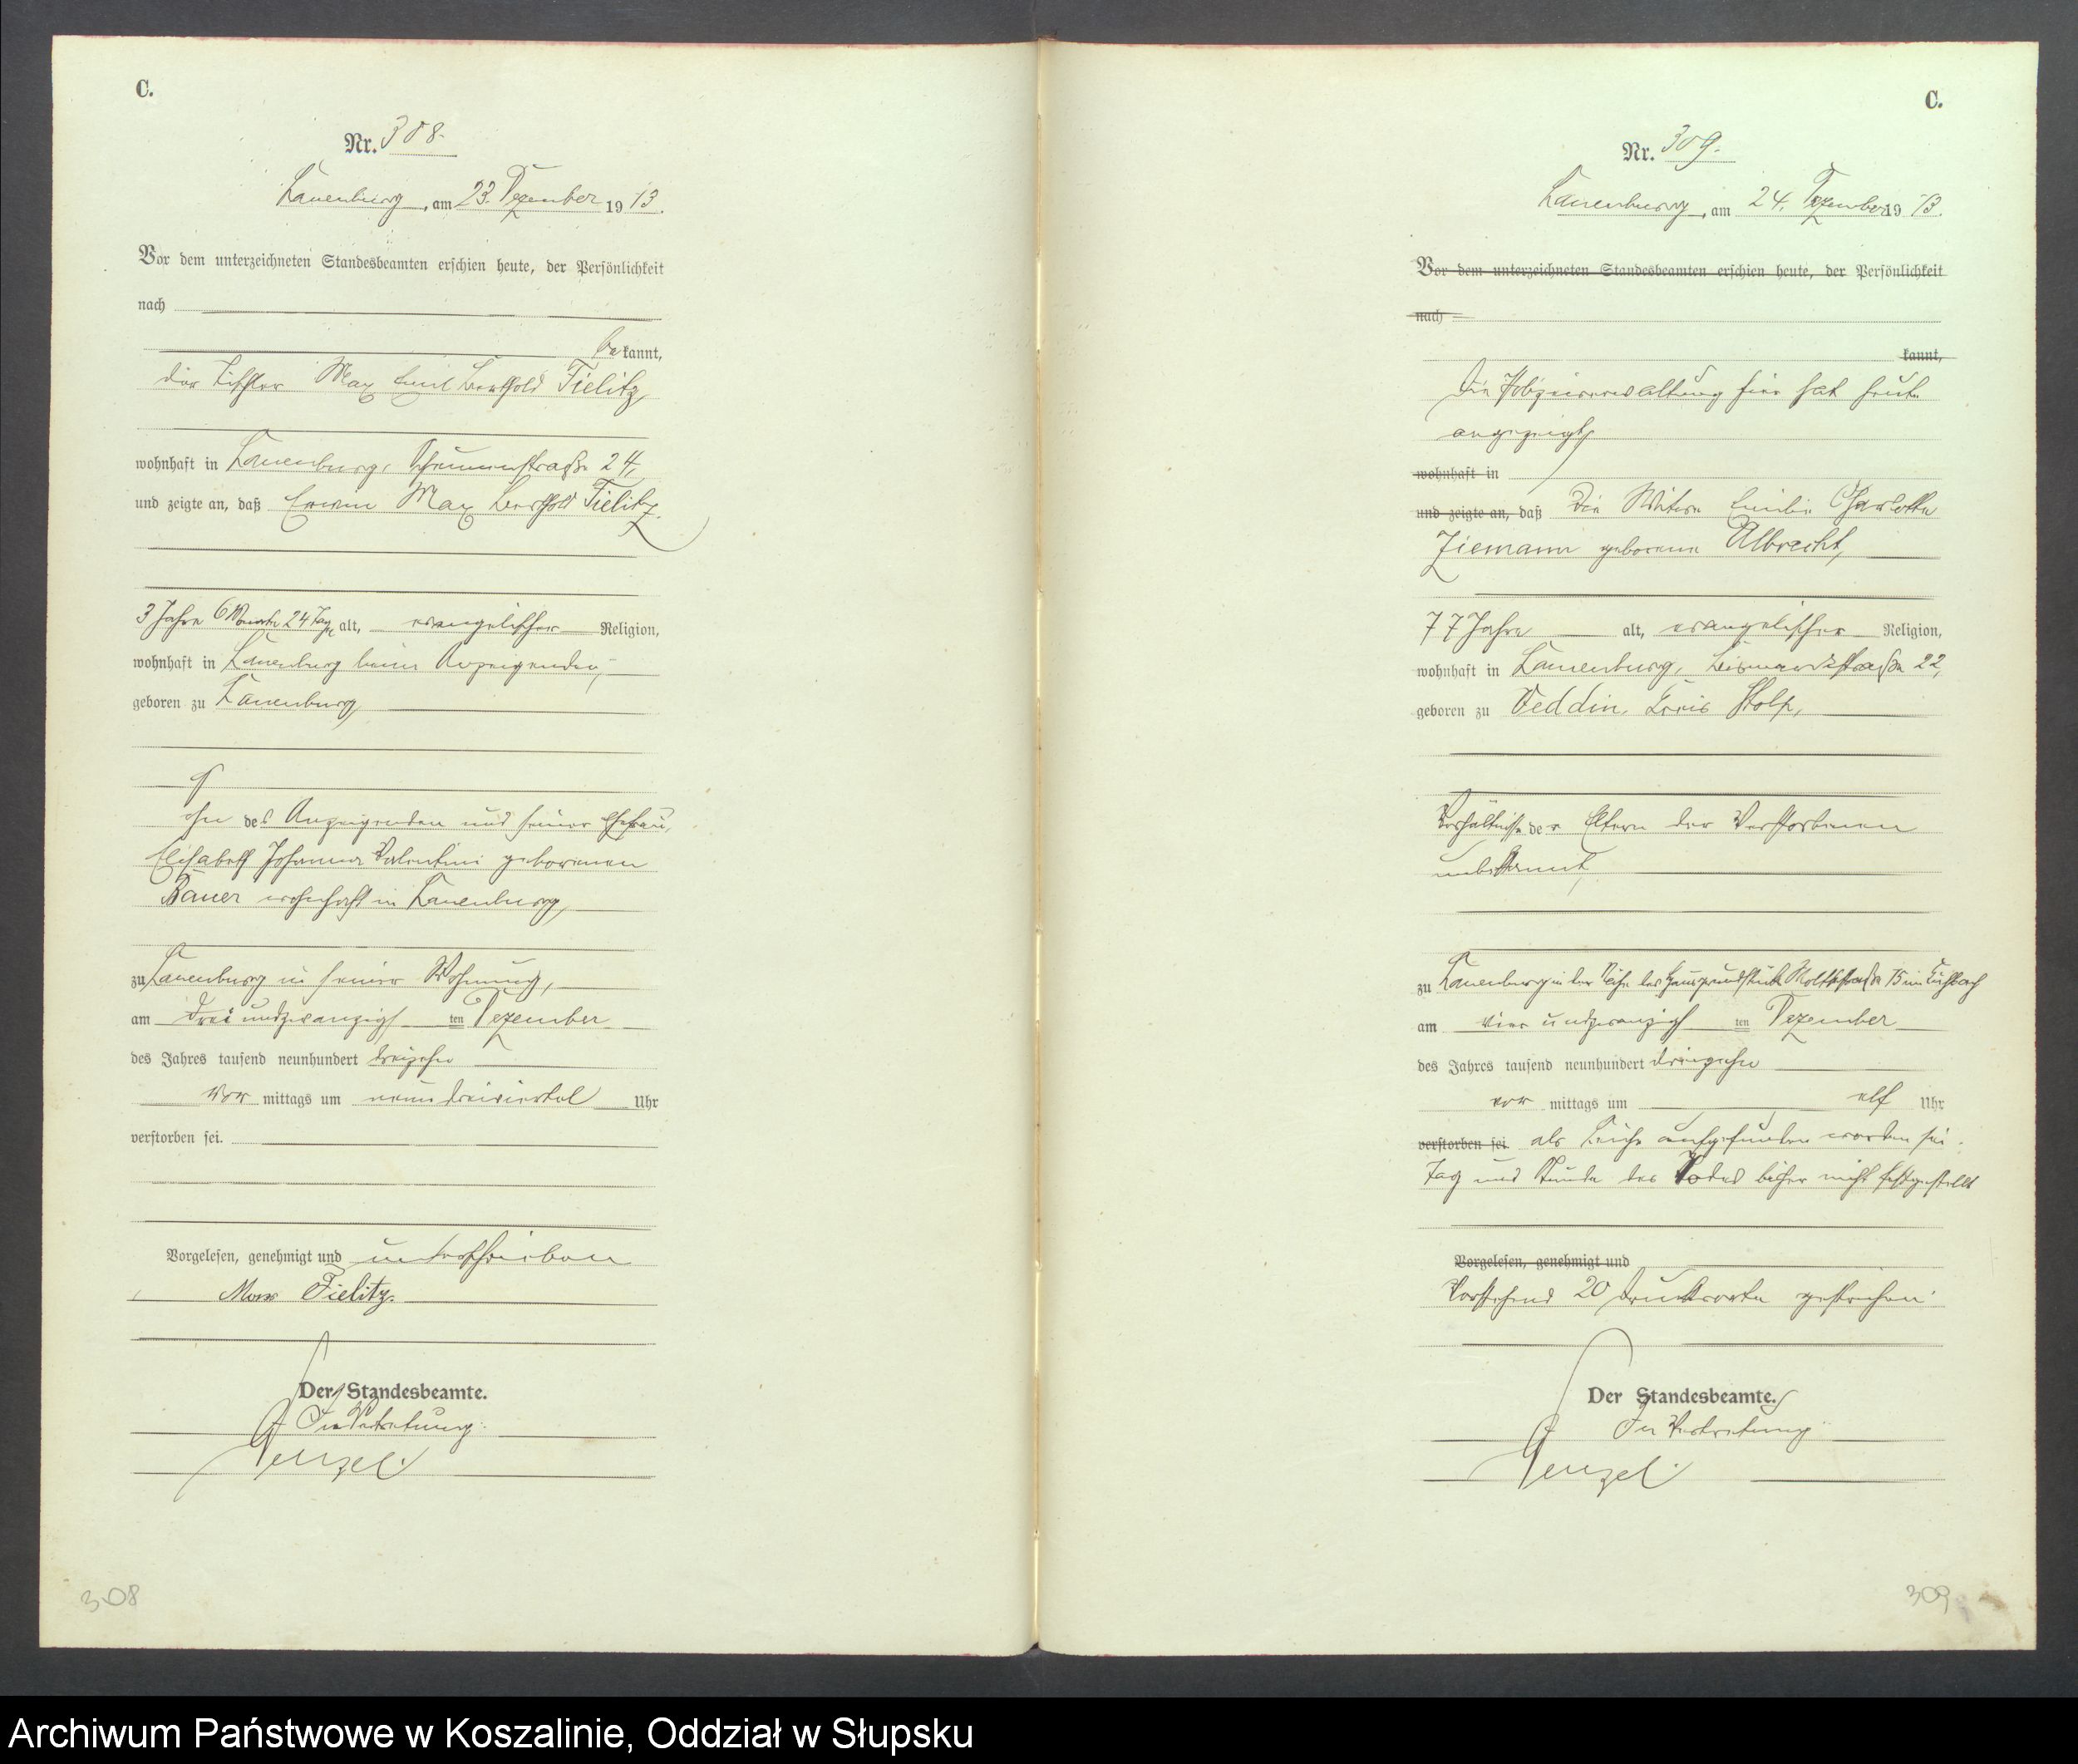 C.
Nr. 308.
Lauenburg, am 23. Dezember 1913.
Vor dem unterzeichneten Standesbeamten erschien heute, der Persönlichkeit
nach
bekannt,
der Tischler Max Emil Berthold Tielitz,
wohnhaft in Lauenburg, Scheunenstraße 24,
und zeigte an, daß Erwin Max Berthold Tielitz
3 Jahre 6 Monate 24 Tage alt, evangelischer Religion,
wohnhaft in Lauenburg beim Anzeigenden,
geboren zu Lauenburg
S
ohn des Anzeigenden und seiner Ehefrau,
Elisabeth Johanna Valentine geborenen
Bauer wohnhaft in Lauenburg,
zu Lauenburg in seiner Wohnung,
am dreiundzwanzigsten Dezember
des Jahres tausend neunhundert dreizehn
vor mittags um neun dreiviertel Uhr
verstorben sei.
Vorgelesen, genehmigt und unterschrieben
Max Tielitz.
Der Standesbeamte.
In Vertretung:
Wenzel.
308
C.
Nr. 309.
Lauenburg, am 24. Dezember 1913.
Vor dem unterzeichneten Standesbeamten erschien heute, der Persönlichkeit
nach
kannt,
Die Polizeiverwaltung hier hat heute
angezeigt,
wohnhaft in
und zeigte an, daß die Witwe Emilie Charlotte
Ziemann geborene Albrecht,
77 Jahre alt, evangelischer Religion,
wohnhaft in Lauenburg, Bismarckstraße 22,
geboren zu Veddin, Kreis Stolp,
Verhältnisse der Eltern der Verstorbenen
unbekannt,
zu Lauenburg in der Nähe des Hausgrundstücks Moltkestraße 15 im
am vierundzwanzigsten Dezember
des Jahres tausend neunhundert dreizehn
vor mittags um elf Uhr
verstorben sei als Leiche aufgefunden worden sei.
Tag und Stunde des Todes bisher nicht festgestellt
Vorgelesen, genehmigt und
Vorstehend 20 Druckworte gestrichen.
Der Standesbeamte.
In Vertretung
Wenzel.
309
Archiwum Państwowe w Koszalinie, Oddział w Słupsku